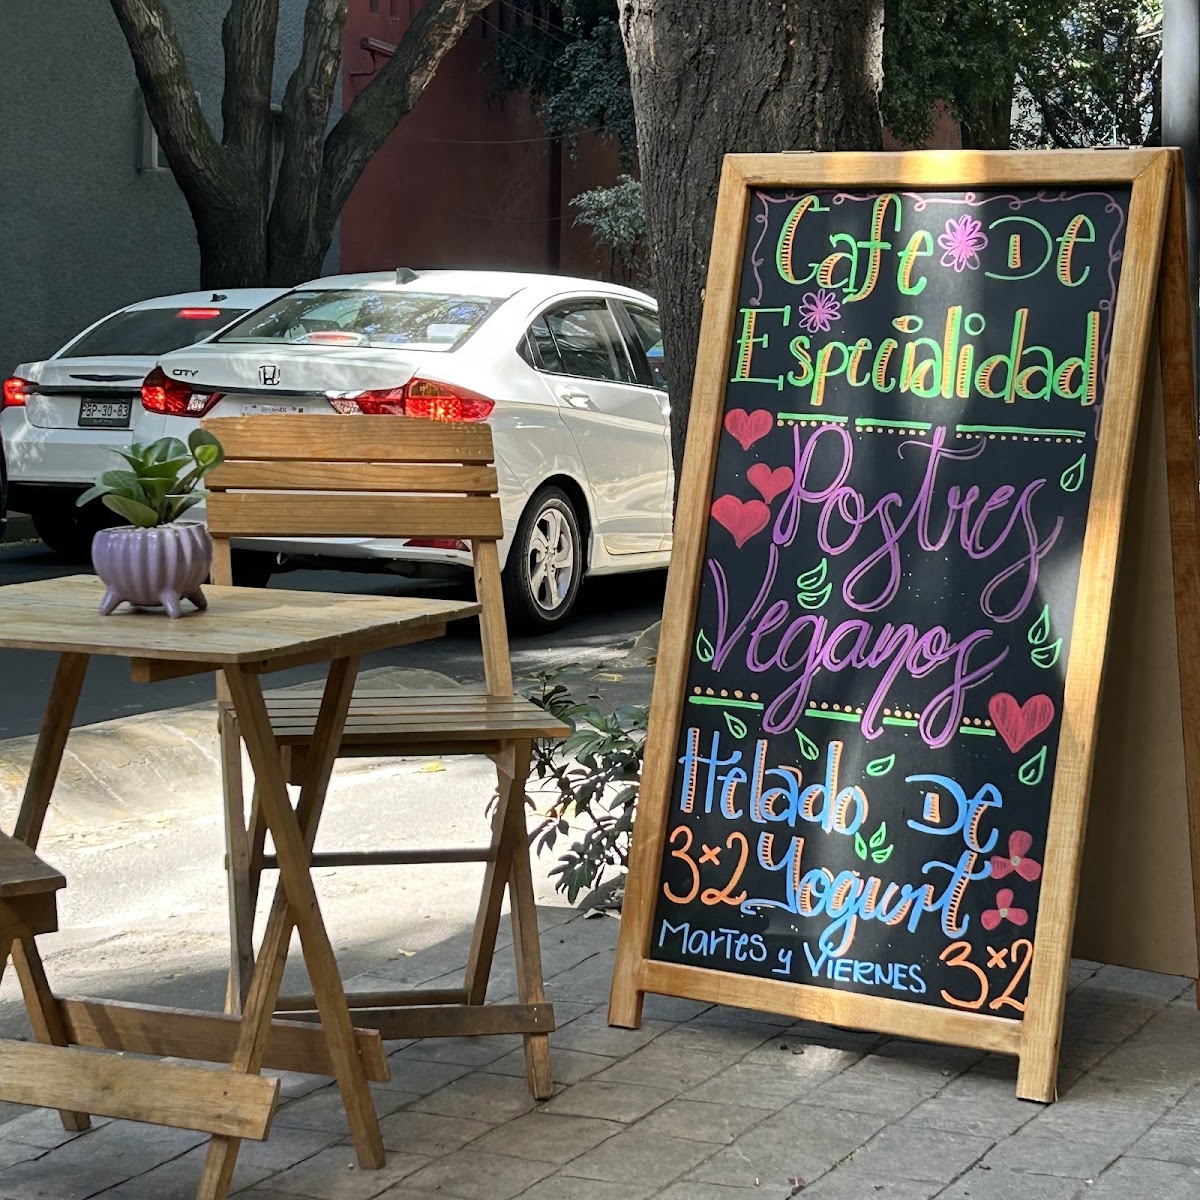 Cafe De
Especialidad
Postres
Veganos
Helado De
3x2 Yogurt
Martes y Viernes 3x2
CITY
PBP-30-83